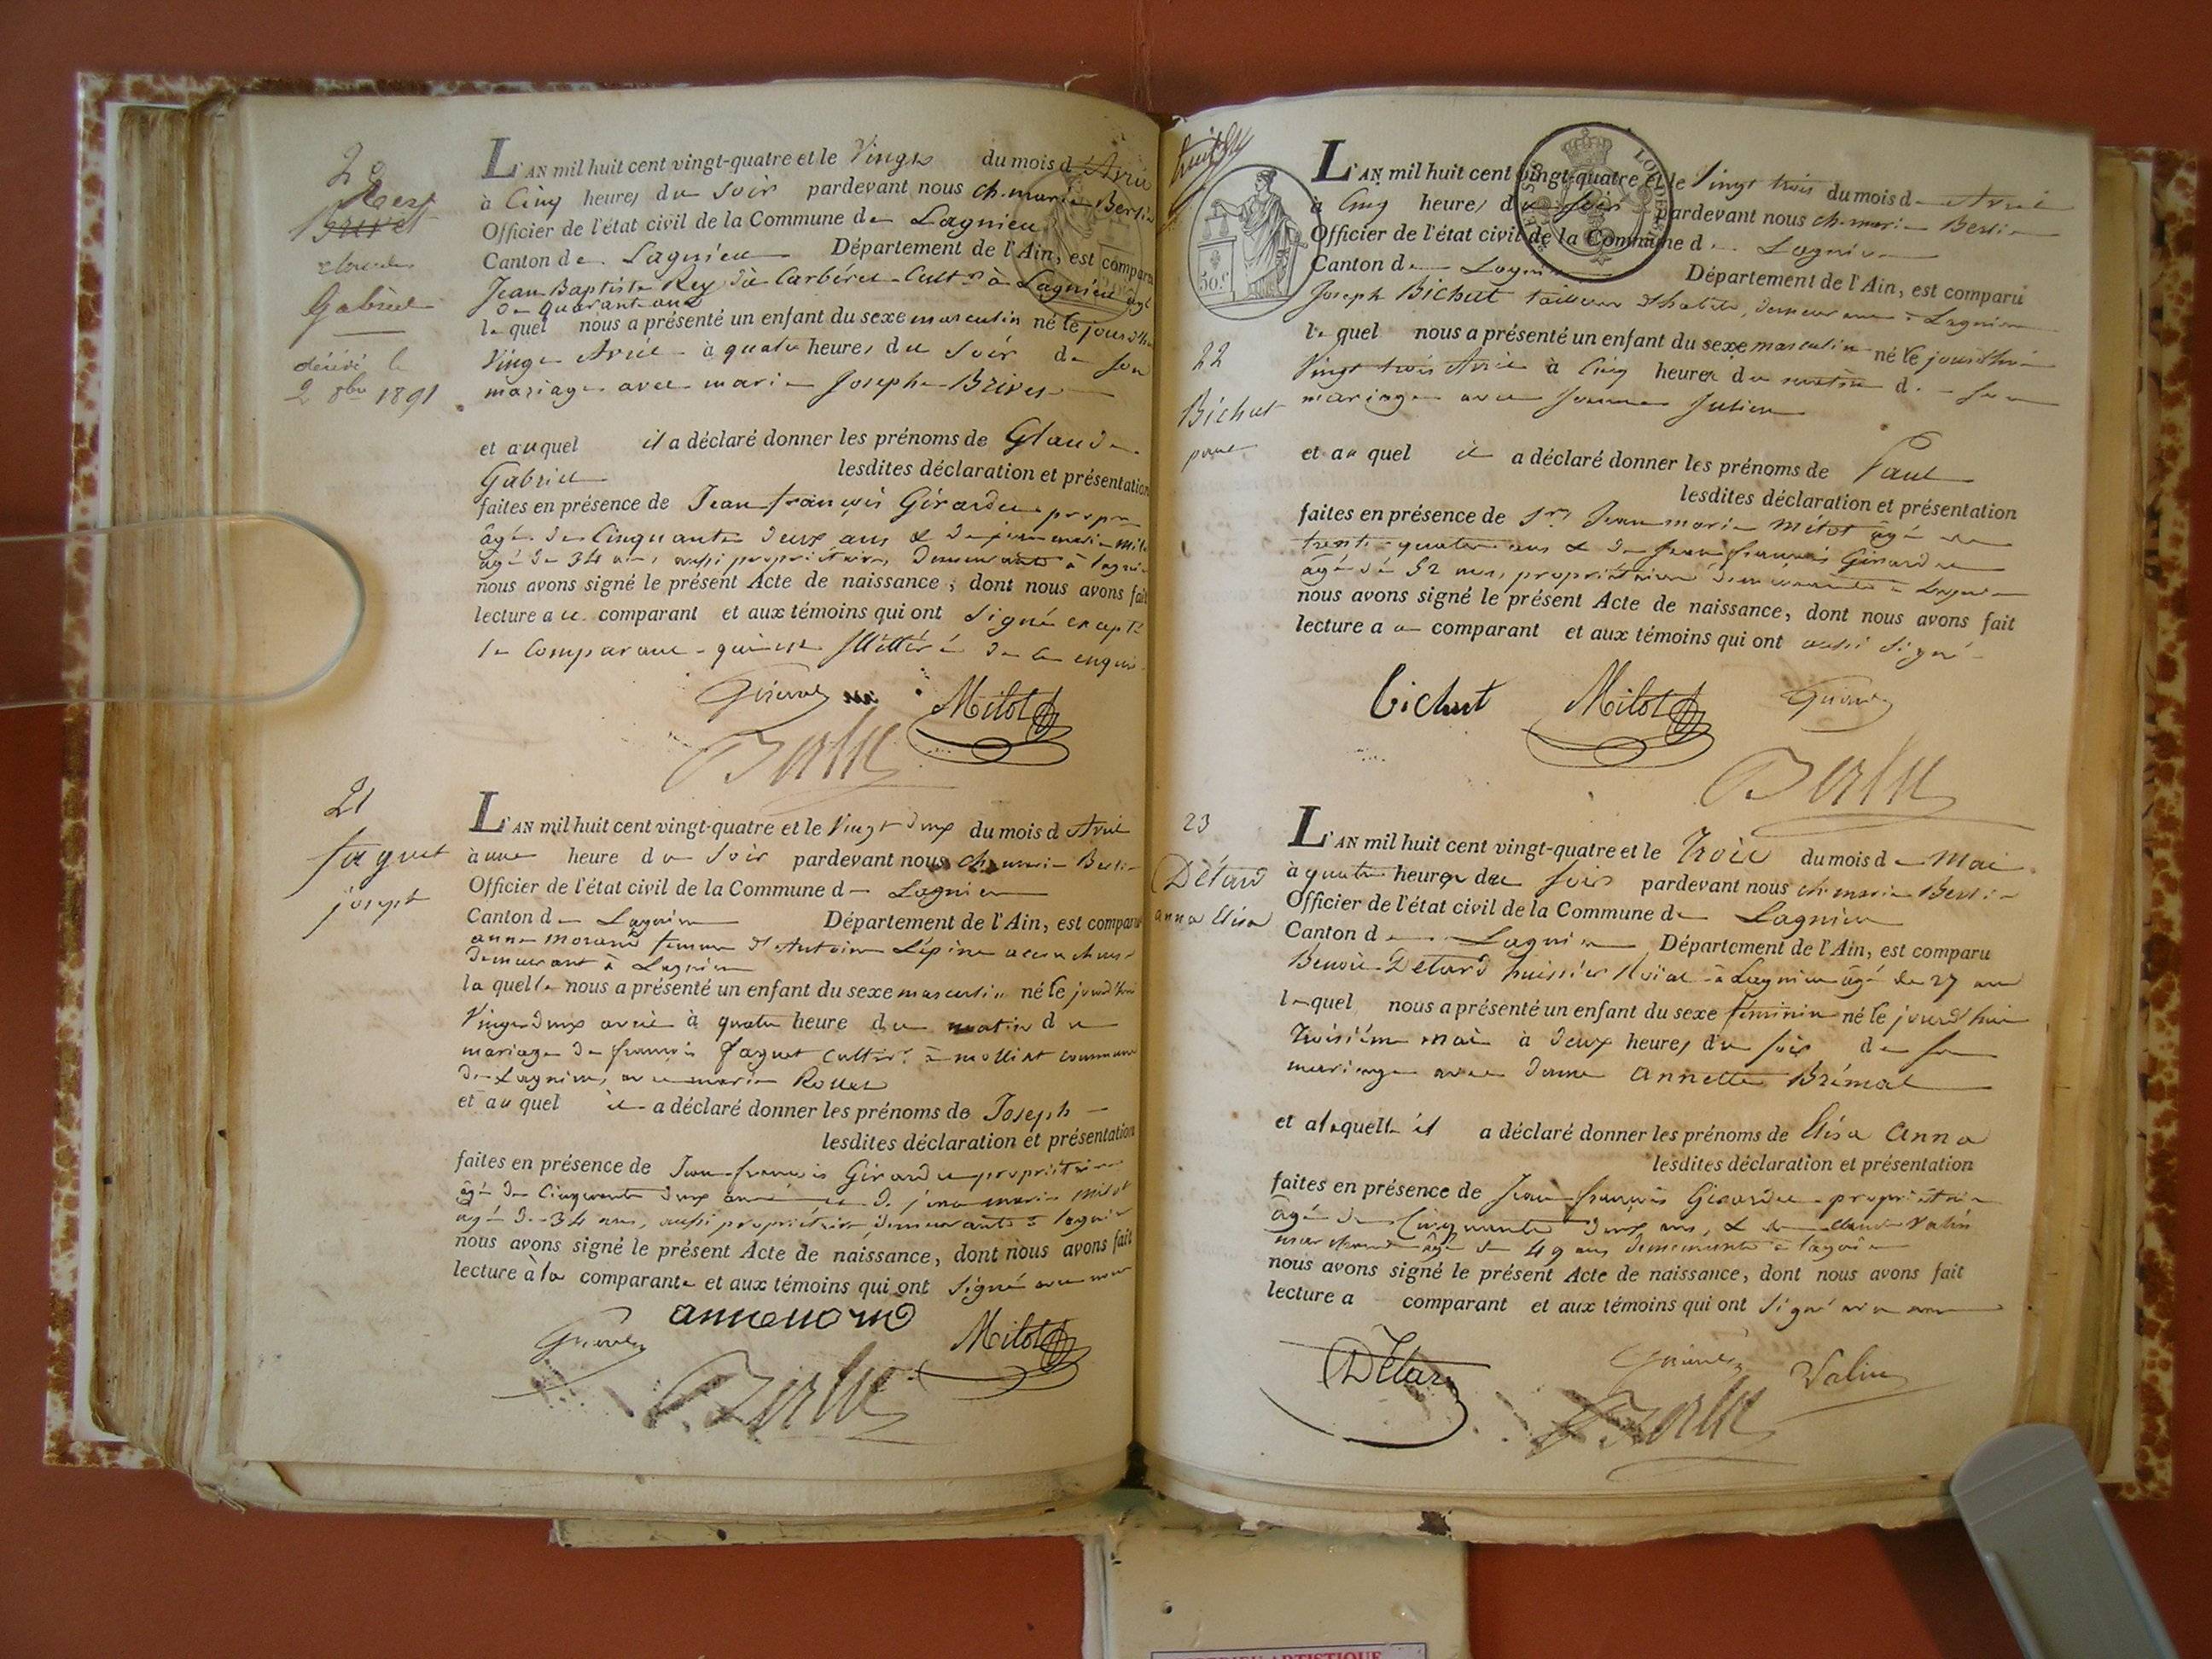 20
Rey
Brivet
claude
Gabriel
décédé le
2 8bre 1891
L'AN mil huit cent vingt-quatre et le Vingt du mois d Avril
à Cinq heures du Soir pardevant nous ch. marie Berlie
Officier de l'état civil de la Commune de Lagnieu
Canton de Lagnieu Département de l'Ain, est comparu
Jean Baptiste Rey dit Carbéret Cultr à Lagnieu agé
de quarante ans
lequel nous a présenté un enfant du sexe masculin né le jourd'hui
Vingt Avril à quatre heures du Soir de son
mariage avec marie Josephe Brivet
et auquel il a déclaré donner les prénoms de Glaude
Gabriel lesdites déclaration et présentation
faites en présence de Jean françois Girardu propre
âgé de Cinquante deux ans & de jean marie Milot
âgé de 34 ans, aussi propriétaire, demeurants à lagnieu
nous avons signé le présent Acte de naissance ; dont nous avons fait
lecture au comparant et aux témoins qui ont Signé excepté
le Comparant qui est illettéré de ce enquis
Milot
21
faguet
joseph
L'AN mil huit cent vingt-quatre et le Vingt deux du mois d Avril
à une heure du Soir pardevant nous ch. marie Berlie
Officier de l'état civil de la Commune de Lagnieu
Canton de Lagnieu Département de l'Ain, est comparu
anne morand femme d'Antoine Lépine accoucheuse
demeurant à Lagnieu
laquelle nous a présenté un enfant du sexe masculin né le jourd'hui
Vingt deux avril à quatre heure du matin du
mariage de françois faguet cultivr à mollist commune
de Lagnieu, avec marie Rollet
et auquel il a déclaré donner les prénoms de Joseph
lesdites déclaration et présentation
faites en présence de Jean françois Girardu propriétaire
âgé de Cinquante deux année de jean marie Milot
âgé de 34 ans, aussi propriétaire demeurants à lagnieu
nous avons signé le présent Acte de naissance, dont nous avons fait
lecture à la comparante et aux témoins qui ont Signé avec nous
Milot
50c
22
Bichut
paul
L'AN mil huit cent vingt-quatre et le Vingt trois du mois d Avril
à Cinq heures du Soir pardevant nous ch. marie Berlie
Officier de l'état civil de la Commune de Lagnieu
Canton de Lagnieu Département de l'Ain, est comparu
Joseph Bichut tailleur d'habits, demeurant à Lagnieu
lequel nous a présenté un enfant du sexe masculin né le jourd'hui
Vingt trois Avril à Cinq heures du matin de son
mariage avec Jeanne Julien
et auquel il a déclaré donner les prénoms de Paul
lesdites déclaration et présentation
faites en présence de Srs Jean marie Milot âgé de
trente quatre ans & de Jean françois Girardu
âgé de 52 ans, propriétaires demeurants à Lagnieu
nous avons signé le présent Acte de naissance, dont nous avons fait
lecture au comparant et aux témoins qui ont aussi Signé
bichut Milot
23
Détard
anna Elisa
L'AN mil huit cent vingt-quatre et le Trois du mois de Mai
à quatre heures du Soir pardevant nous ch. marie Berlie
Officier de l'état civil de la Commune de Lagnieu
Canton de Lagnieu Département de l'Ain, est comparu
Benoit Détard huissier Roïal à Lagnieu âgé de 27 ans
lequel nous a présenté un enfant du sexe féminin né le jourd'hui
troisième mai à deux heures du soir de son
mariage avec dame Annette Brémal
et alaquelle il a déclaré donner les prénoms de Elisa Anna
lesdites déclaration et présentation
faites en présence de Jean françois Girardu propriétaire
âgé de Cinquante deux ans, & de claude Valin
marchand âgé de 49 ans demeurants à lagnieu
nous avons signé le présent Acte de naissance, dont nous avons fait
lecture a comparant et aux témoins qui ont Signé avec nous
Détard Valin